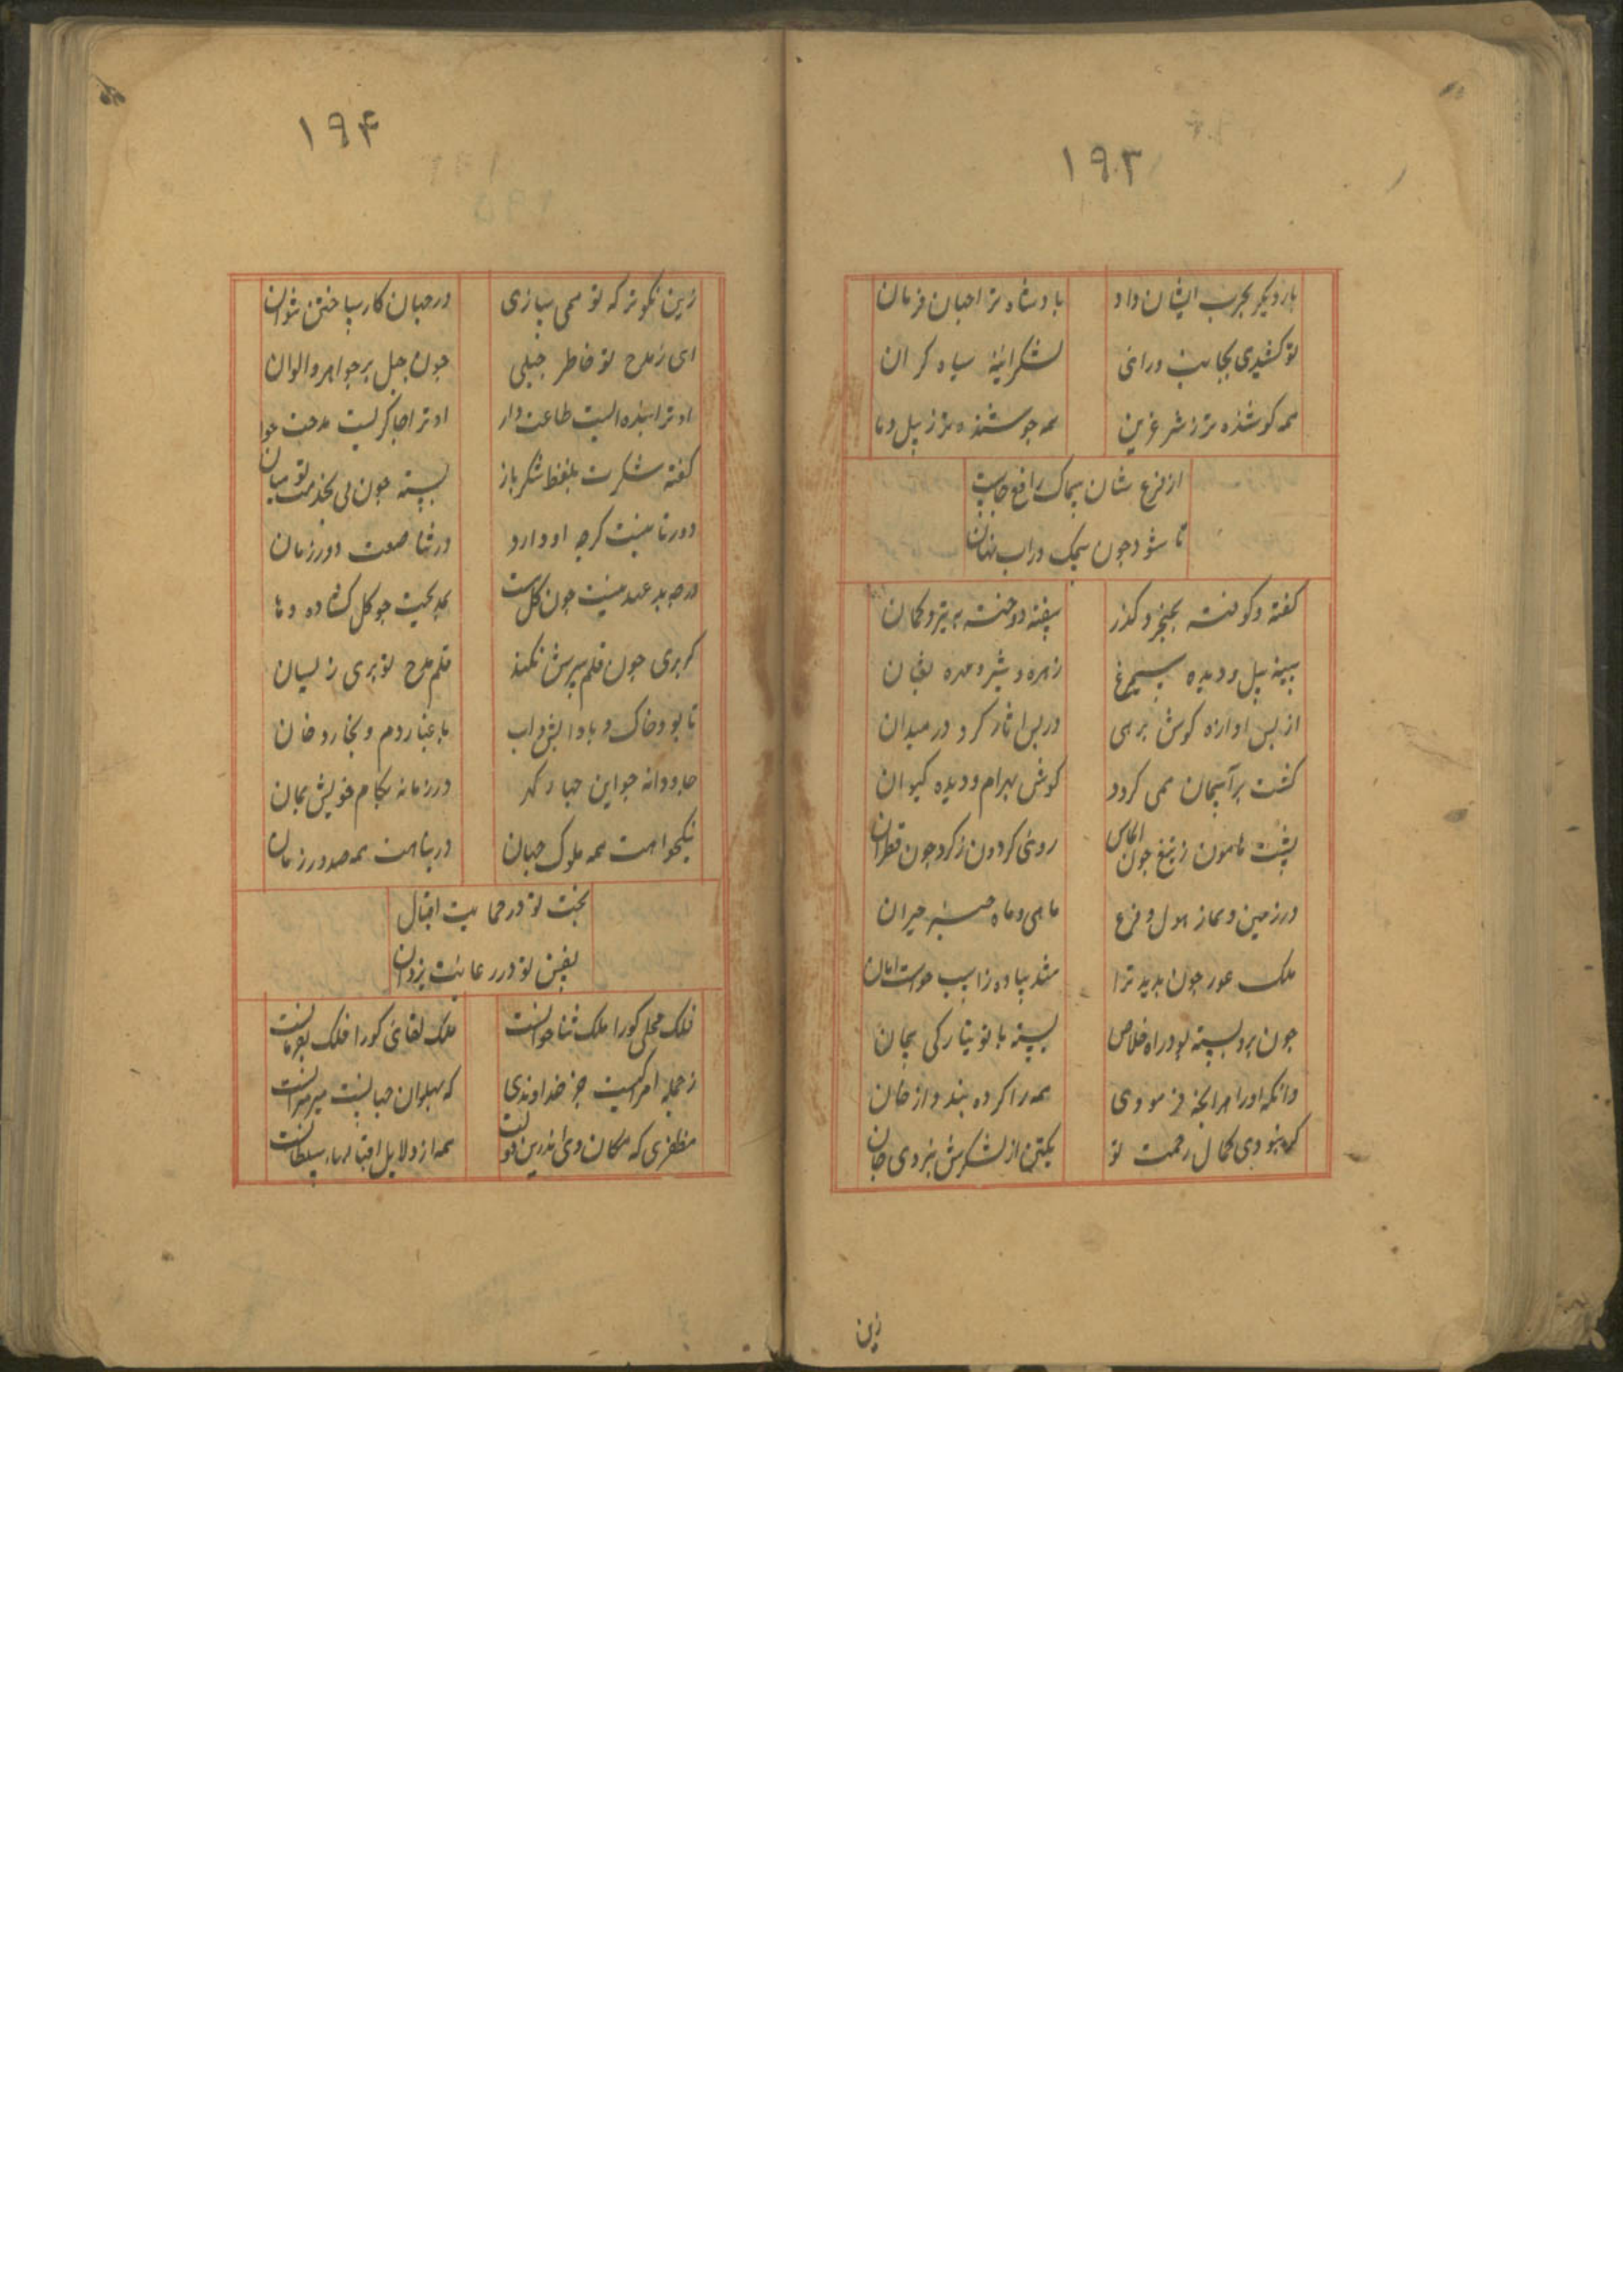 ۱۹۳
بار دیگر بحرب ایشان داد بادشاه ترا جهان فرمان
تو کشیدی بجانب در ای لشکر سیاه کران
همه کوشنده تر ز شیر عرین همه جوشنده تر ز پیل دمان
از فزع شان سماک رافع
تا شود چون سمک در اب نهان
کفته و کوفته بخنجر و کذر سفته و دوخته به تیر و کمان
سینه پیل و دیده سیمرغ زهره شیر و مهره ثعبان
از بس اوازه کوش برهی در بس اثار کرد در میدان
کشت بر آسمان همی کردد کوش بهرام و دیده کیوان
پشت هامون ز تیغ چون الماس روی کردون ز کرد چون قطران
در زمین و سما ز هول و فزع ماهی و ماه خیره حیران
ملک غور چون بدید ترا شد پیاده ز اسب خواست امان
چون برو بسته بود راه خلاص بسته با تو بیار کی بجان
وانکه او را هر انچه فرمودی همه را کرده بند واز خان
کر نبودی کمال رحمت تو یکتن از لشکرش نبردی جان
زین
۱۹۴
زین نکوتر که تو همی سازی در جهان کار ساختن نتوان
ای ز مدح تو خاطر جبلی چون جبل بر جواهر والوان
او ترا بنده ایست طاعت دار او ترا چاکریست مدحت خوان
کفته شکرت بلفظ شکر بار بسته چون نی بخدمت تو میان
دور تا نیست کرچه او دارد در ثنا صعت دور زمان
ورچه بد عهد نیست چون کل هست بمدیحت چو کل کشاده دهان
کر بری چون قلم سرش نکند قلم مدح تو بری ز لسان
تا بود خاک و باد و اتش و اب با غبار و دم و بخار و دخان
جاودانه چو این چهار کهر در زمانه بکام خویش بمان
نیکخواهت همه ملوک جهان در پناهت همه صدور زمان
بخت تو در حمایت اقبال
نفس تو در رعایت یزدان
فلک محلی کورا ملک ثنا خوانست ملک لقائی کورا فلک بفرمانست
ز جمله امرا کیست جز خداوندی که پهلوان جهانست میر میرانست
مظفری که مکان وی اندرین دولت همه از دلایل اقبالهاء سلطانست